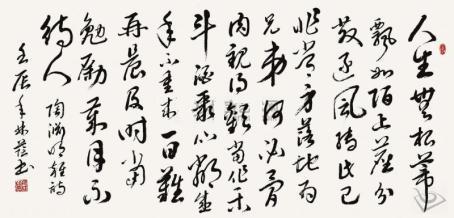 人生無根蒂
飄如陌上塵分
散逐風轉此已
非常身落地为
兄弟何必骨
肉親得歡當作樂
斗酒聚比鄰盛
年不重来一日難
再晨及时當
勉勵歲月不
待人 陶淵明雜詩
壬辰年 书